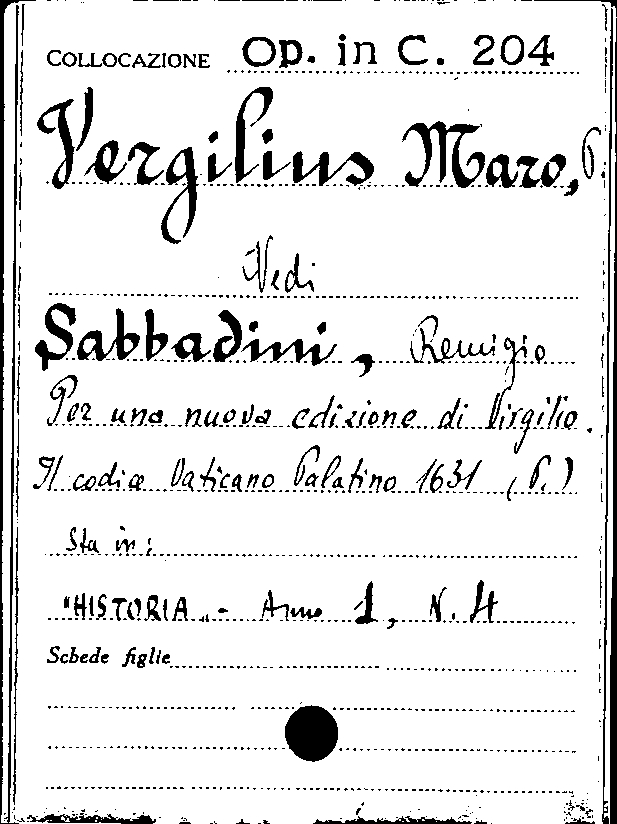 COLLOCAZIONE Op. in C. 204
Vergilius Maro, P.
Vedi
Sabbadini, Remigio
Per una nuova edizione di Virgilio.
Il codice Vaticano Palatino 1631 (P.)
Sta in:
"HISTORIA" - Anno 1, N. 4
Schede figlie